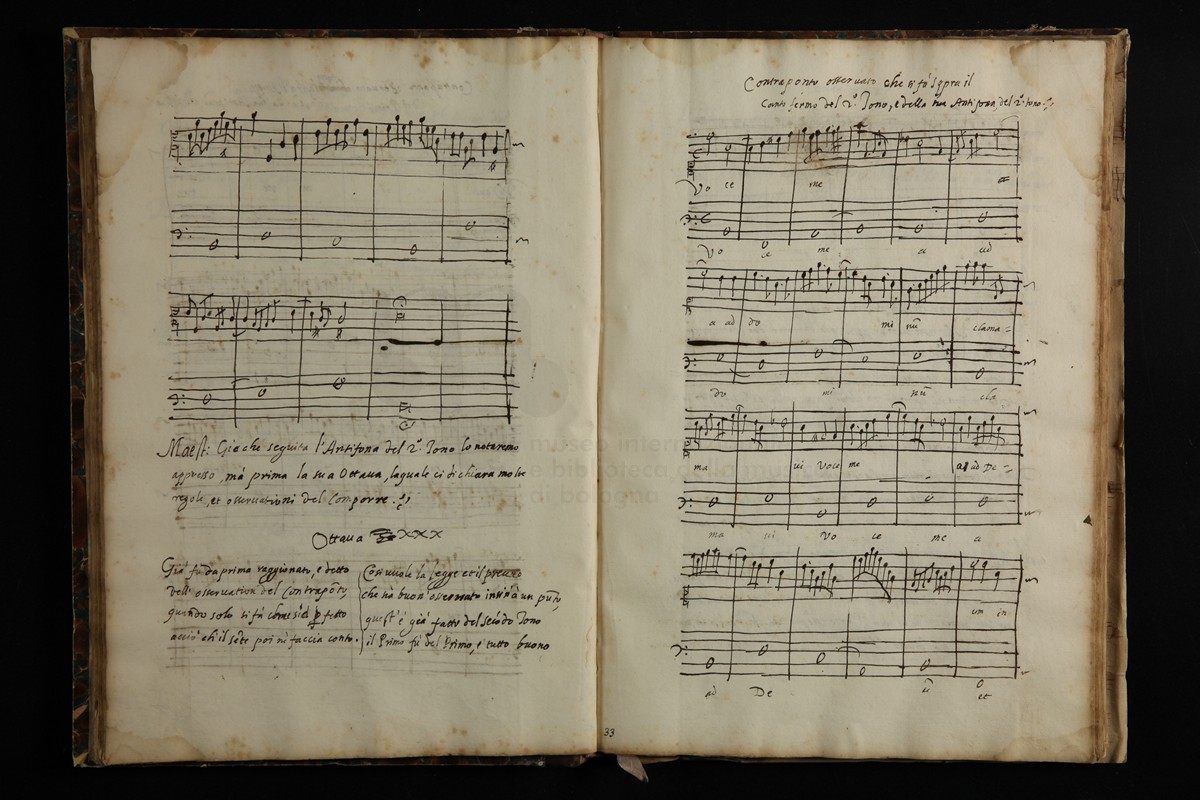 Maest: Gia che seguita l'Antifona del 2.º Tono lo notaremo
appresso, mà prima la sua Ottava, laquale ci dichiara molte
regole, et osservationi del Comporre.
Ottava XXX
Già fù da prima raggionato, e detto
dell' osservation del Contrapõto,
quando solo si fà perfetto
acciò ch'il poi nì faccia conto.
Così vuole la legge et il
che hà buon' osservato insin'à un pũto,
quest' è già fatto del Secõdo Tono
il Primo fù del Primo, e tutto buono
33
Contraponto osservato che si fà sopra il
Canto fermo del 2.º Tono, e della sua Antifona del 2.º tono
Vo ce me
Vo ce me a ad
a ad do mi nũ clama
do mi nũ cla
ma vi Voce me ad De
ma vi Vo ce me a
um in
ad De ũ et
museo internazionale
e biblioteca della musica
di bologna